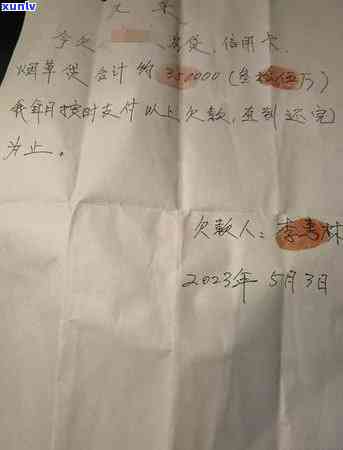 xunlv
欠条
今欠 房贷,信用卡.
烟草贷合计约350000(叁拾伍万)
我每月按时支付以上欠款,直到还完
为止。
欠款人:李秀林
2023年5月3日